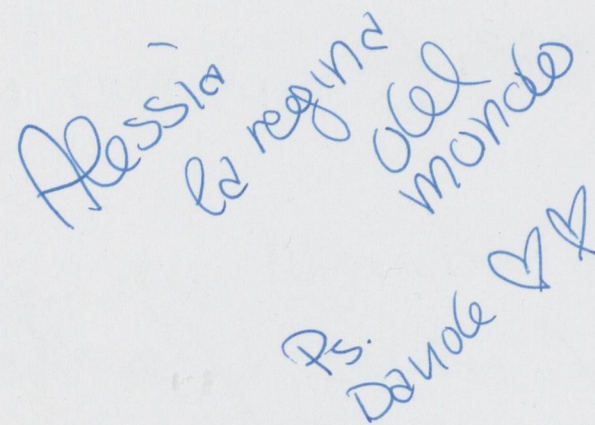 Alessia
la regina
del
mondo
Ps.
Davide ♡♡